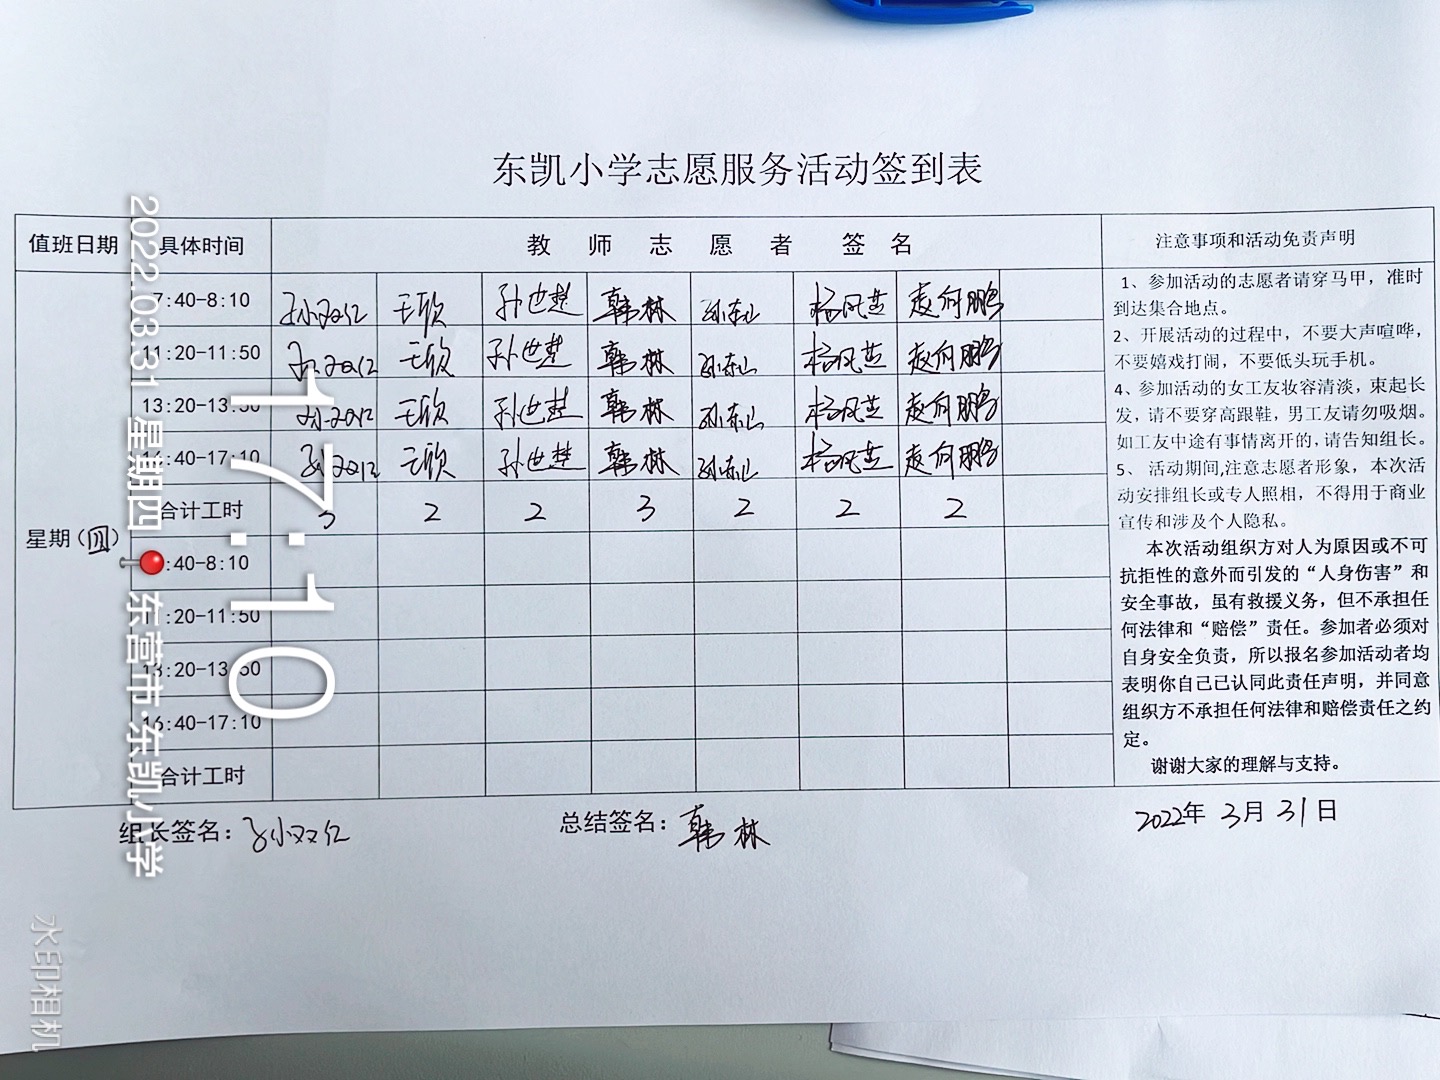 东凯小学志愿服务活动签到表
值班日期 具体时间 教师志愿者签名 注意事项和活动免责声明
7:40-8:10 王欣 孙世楚 韩林 孙东山 杨风芝 赵向鹏
11:20-11:50 王欣 孙世楚 韩林 孙东山 杨风芝 赵向鹏
13:20-13:50 王欣 孙世楚 韩林 孙东山 杨风芝 赵向鹏
16:40-17:10 王欣 孙世楚 韩林 孙东山 杨风芝 赵向鹏
合计工时 3 2 2 3 2 2 2
星期(四)
7:40-8:10
11:20-11:50
13:20-13:50
16:40-17:10
合计工时
1、参加活动的志愿者请穿马甲，准时
到达集合地点。
2、开展活动的过程中，不要大声喧哗，
不要嬉戏打闹，不要低头玩手机。
4、参加活动的女工友妆容清淡，束起长
发，请不要穿高跟鞋，男工友请勿吸烟。
如工友中途有事情离开的，请告知组长。
5、 活动期间,注意志愿者形象，本次活
动安排组长或专人照相，不得用于商业
宣传和涉及个人隐私。
本次活动组织方对人为原因或不可
抗拒性的意外而引发的“人身伤害”和
安全事故，虽有救援义务，但不承担任
何法律和“赔偿”责任。参加者必须对
自身安全负责，所以报名参加活动者均
表明你自己已认同此责任声明，并同意
组织方不承担任何法律和赔偿责任之约
定。
谢谢大家的理解与支持。
组长签名： 总结签名：韩林 2022年 3月 31日
17:10
2022.03.31 星期四
东营市·东凯小学
水印相机